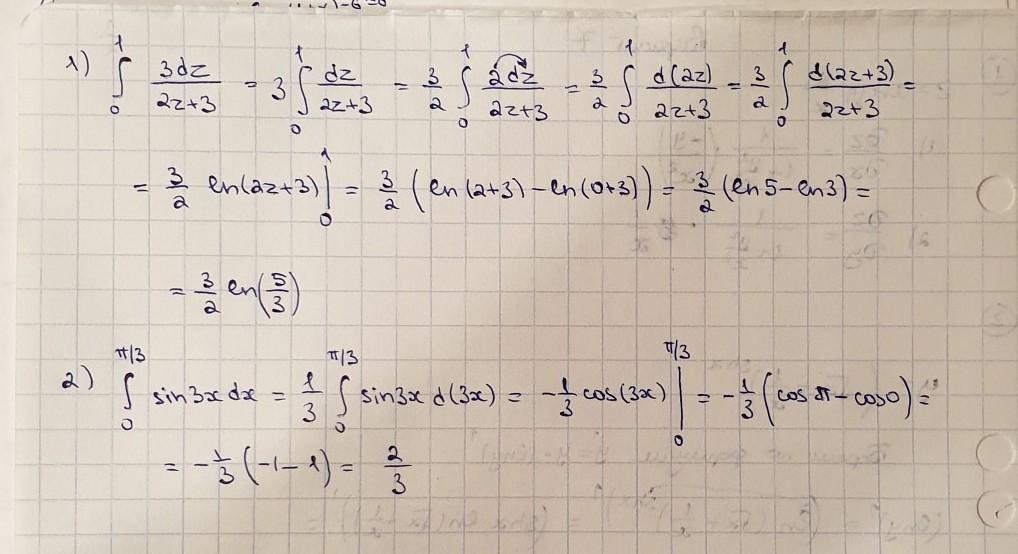 1) ∫₀¹ 3dz/(2z+3) = 3 ∫₀¹ dz/(2z+3) = 3/2 ∫₀¹ 2dz/(2z+3) = 3/2 ∫₀¹ d(2z)/(2z+3) = 3/2 ∫₀¹ d(2z+3)/(2z+3) =
= 3/2 ln(2z+3) |₀¹ = 3/2 (ln(2+3) - ln(0+3)) = 3/2 (ln5 - ln3) =
= 3/2 ln(5/3)
2) ∫₀^(π/3) sin3x dx = 1/3 ∫₀^(π/3) sin3x d(3x) = -1/3 cos(3x) |₀^(π/3) = -1/3 (cos π - cos0) =
= -1/3 (-1-1) = 2/3